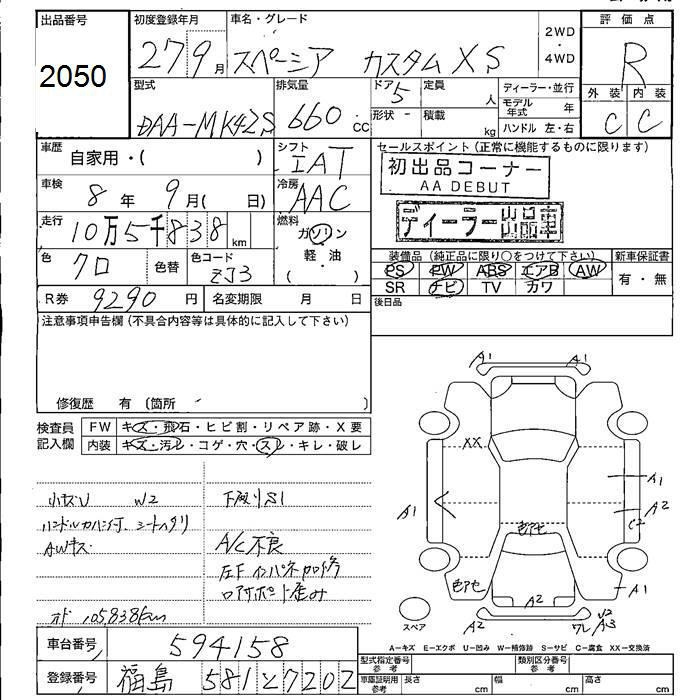 出品番号 初度登録年月 車名・グレード 評価点
2050 27 9月 スペーシア カスタム XS 2WD・4WD R
型式 排気量 ドア 定員 ディーラー・並行 外装 内装
DAA-MK42S 660cc 5 人 C C
形状 積載 kg モデル年式 年
ハンドル 左・右
車歴 自家用・( ) シフト IAT セールスポイント(正常に機能するものに限ります)
初出品コーナー
AA DEBUT
車検 8年 9月( 日) 冷房 AAC
ディーラー出品車
走行 10万5千838km 燃料 ガソリン
軽・油
・( )
色 クロ 色替 色コード ZJ3
装備品(純正品に限り○をつけて下さい) 新車保証書
PS PW ABS エアB AW 有・無
SR ナビ TV カワ
R券 9290円 名変期限 月 日 後日品
注意事項申告欄(不具合内容等は具体的に記入して下さい)
修復歴 有(箇所 )
検査員記入欄 FW キズ・飛石・ヒビ割・リペア跡・X要
内装 キズ・汚レ・コゲ・穴・スレ・キレ・破レ
小キズU W2 下廻りS1
ハンドルカバー付 シートヘタリ
AWキズ A/C不良
左Fインパネ加修
ロアサポート歪み
オド 105838km
A1 A1
XX
A1 A1
A2
C2
色アセ
色アセ A1
A2
A2 U2
ワレ A3
スペア
A-キズ E-エクボ U-凹み W-補修跡 S-サビ C-腐食 XX-交換済
車台番号 594158
登録番号 福島 581 と 7202
型式指定番号 参考 類別区分番号 参考
車庫証明用 参考 長さ cm 幅 cm 高さ cm